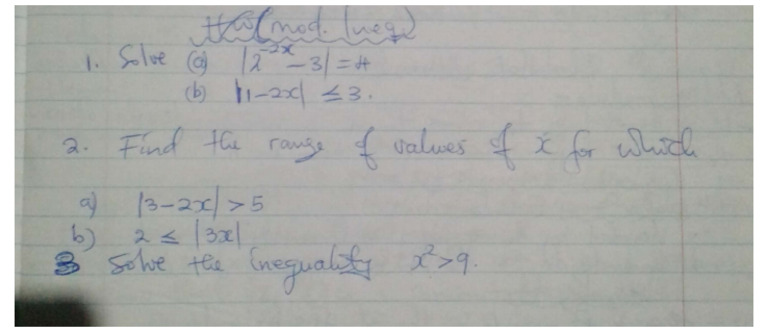 HW (mod. Ineq)
1. Solve (a) |2^{-2x} - 3| = 4
(b) |1-2x| ≤ 3.
2. Find the range of values of x for which
a) |3-2x| > 5
b) 2 ≤ |3x|
3 Solve the inequality x² > 9.